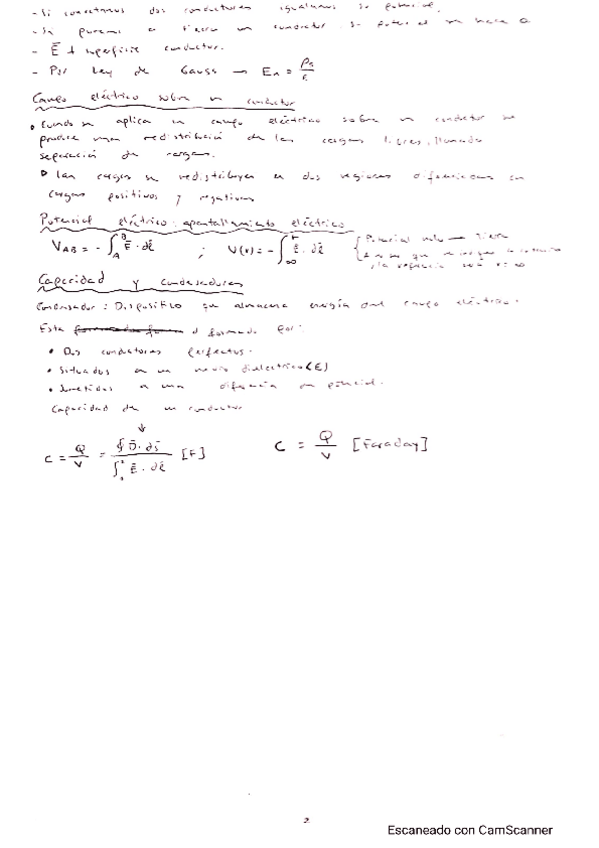 - Si conectamos dos conductores igualamos su potencial.
- Si ponemos a tierra un conductor su potencial se hace 0
- E̅ ⊥ superficie conductor.
- Por Ley de Gauss → En = ρs/ε
Campo eléctrico sobre un conductor
• Cuando se aplica un campo eléctrico sobre un conductor se
produce una redistribució de las cargas libres, llamada
separació de cargas.
• Las cargas se redistribuyen en dos regiones diferenciadas en
cargas positivas y negativas
Potencial eléctrico: apantallamiento eléctrico
V_AB = -∫_A^B E̅ · dl̅ ; V(r) = -∫_∞^r E̅ · dl̅ { Potencial nulo → Tierra
la referencia será r = ∞
Capacidad y condesadores
Condensador: Dispositivo que almacena energía campo eléctrico.
Esta formado por:
• Dos conductores perfectos.
• Situados en un medio dielectrico (E)
• Sometidos a una diferencia de potencial.
Capacidad de un conductor
↓
C = Q/V = ∮ D̅ · ds̅ / ∫ E̅ · dl̅ [F] C = Q/V [Faraday]
2
Escaneado con CamScanner